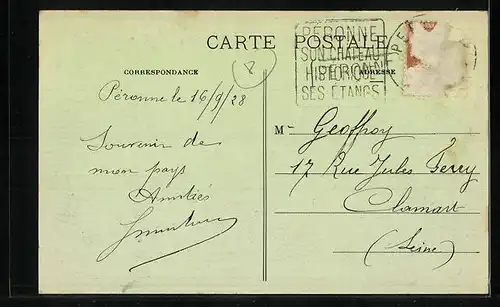 CARTE POSTALE
CORRESPONDANCE
ADRESSE
PERONNE
SON CHATEAU
HISTORIQUE
SES ETANGS
8
Péronne le 16/9/28
Souvenir de
mon pays
Amitiés
M- Geoffroy
17 Rue Jules Ferry
Clamart
(Seine)